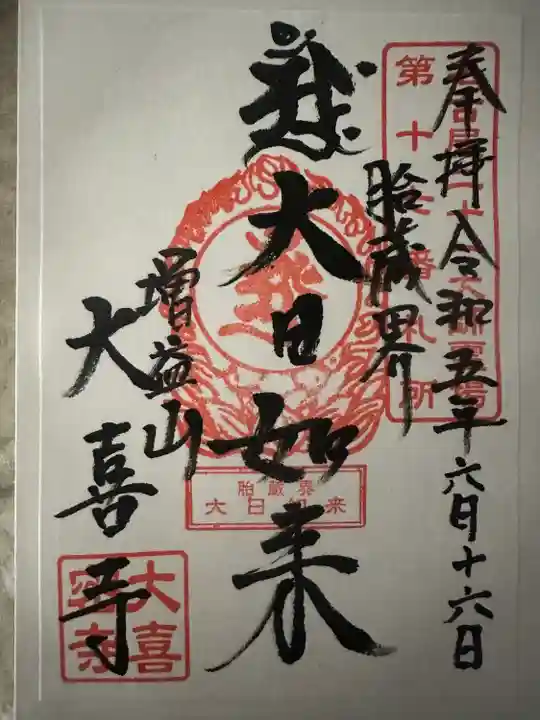 奉拝 令和五年六月十六日
第十
番札所
胎蔵界
大日如来
増益山
大喜寺
胎蔵界
大日如来
大喜
寺